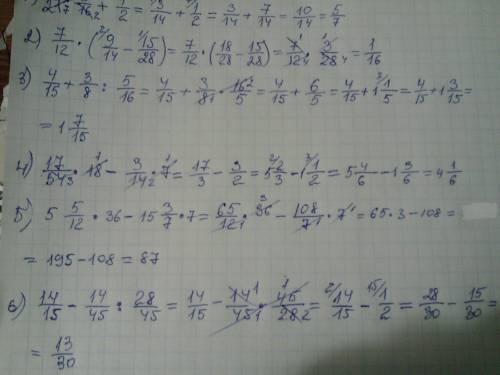 + 1/2 = 3/14 + 1/2 = 3/14 + 7/14 = 10/14 = 5/7
2) 7/12 · (9/14 − 15/28) = 7/12 · (18/28 − 15/28) = 7/12 · 3/28 = 1/16
3) 4/15 + 3/8 : 5/16 = 4/15 + 3/8 · 16/5 = 4/15 + 6/5 = 4/15 + 1 1/5 = 4/15 + 1 3/15 =
= 1 7/15
4) 17/54 · 18 − 3/14 · 7 = 17/3 − 3/2 = 5 2/3 − 1 1/2 = 5 4/6 − 1 3/6 = 4 1/6
5) 5 5/12 · 36 − 15 3/7 · 7 = 65/12 · 36 − 108/7 · 7 = 65 · 3 − 108 =
= 195 − 108 = 87
6) 14/15 − 14/45 : 28/45 = 14/15 − 14/45 · 45/28 = 14/15 − 1/2 = 28/30 − 15/30 =
= 13/30